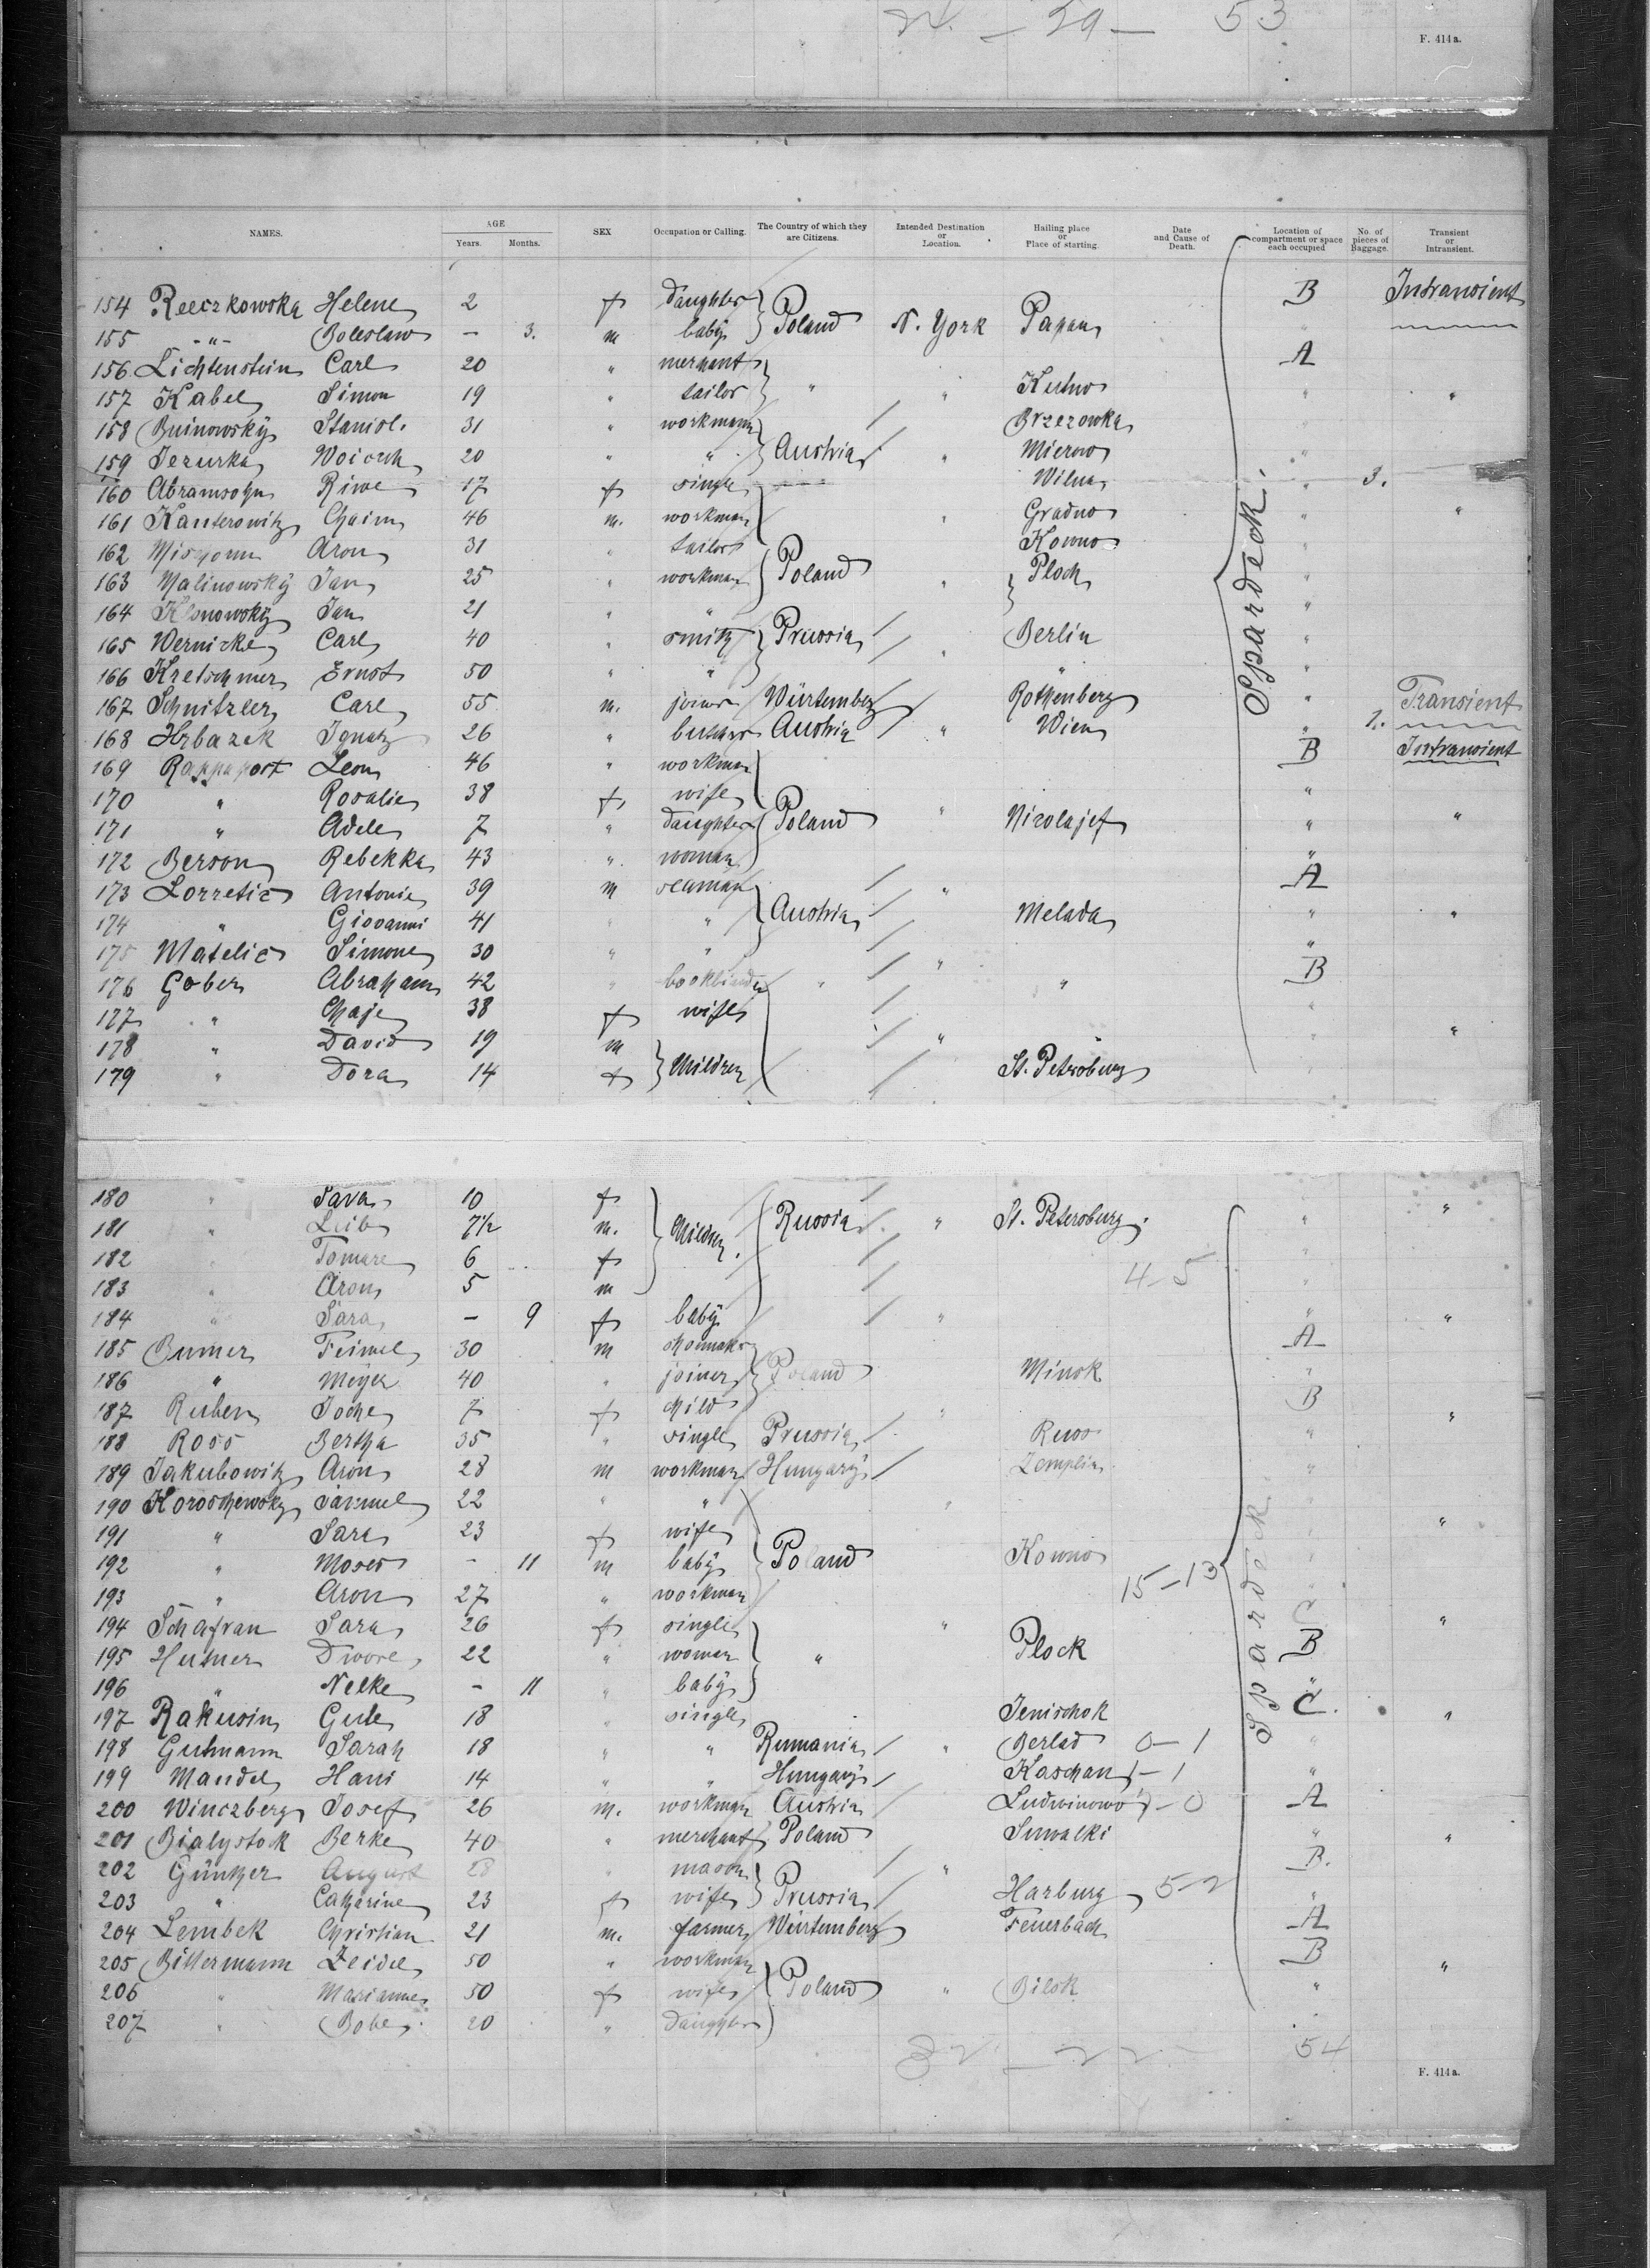 24 - 29 - 53
F. 414a.
NAMES. AGE Years. Months. SEX Occupation or Calling. The Country of which they are Citizens. Intended Destination or Location. Hailing place or Place of starting. Date and Cause of Death. Location of compartment or space each occupied No. of pieces of Baggage. Transient or Intransient.
154 Reeczkowska Helene 2 f daughter Poland N. York Papan B Intransient
155 -"- Boleslaw - 3. m baby "
156 Lichtenstein Carl 20 " merchant " A
157 Kabel Simon 19 " tailor " Kutno " "
158 Buinowsky Stanisl. 31 " workmann Brzezowka "
159 Jezurka Woicech 20 " " Austria " Mierow "
160 Abramsohn Riwe 17 f single Wilna " 3.
161 Kanterowitz Chaim 46 m. workman " Gradno " "
162 Aron 31 " tailor Kowno "
163 Malinowsky Jan 25 " workman Poland " Plock "
164 Jan 21 " " "
165 Wernicke Carl 40 " smith Prussia " Berlin "
166 Kretschmer Ernst 50 " " " "
167 Schnitzler Carl 55 m. joiner Würtemberg Rothenberg " Transient
168 Hrbazek Ignatz 26 " butcher Austria " Wien " 1.
169 Rappaport Leon 46 " workman B Intransient
170 " Rosalie 38 f wife "
171 " Adele 7 " daughter Poland " Nicolajef " "
172 Berson Rebekka 43 " woman "
173 Lorretic Antonie 39 m seaman " A
174 " Giovanni 41 " " Austria Melada " "
175 Matelic Simone 30 " " "
176 Gober Abraham 42 " bookbinder " " " B
177 " Chaje 38 f wife "
178 " David 19 m " " "
179 " Dora 14 f Children St. Petersburg "
Spardeck.
180 " Sara 10 f "
181 " Leib 7½ m. Children. Russia " St. Petersburg. "
182 " Tomare 6 f "
183 " Aron 5 m 4-5 "
184 " Sara - 9 f baby " " "
185 Bumer Feimel 30 m shomaker A
186 " Meyer 40 " joiner Poland Minsk "
187 Ruben Joche 7 f child " B "
188 Ross Bertha 35 " single Prussia Russ "
189 Jakubowitz Aron 28 m workman Hungary Zemplin "
190 Koroschewsky Samuel 22 " " "
191 " Sara 23 f wife "
192 " Moses - 11 m baby Poland Kowno "
193 " Aron 27 " workman 15-13 "
194 Schafran Sara 26 f single " C "
195 Hutner Dwore 22 " woman " Plock B
196 " Nelke - 11 " baby "
197 Rakusin Gute 18 " single Jenischok C. "
198 Gutmann Sarah 18 " " Rumania " Berlad 0-1 "
199 Mandel Hani 14 " " Hungary Kaschau -1 "
200 Winczberg Josef 26 m. workman Austria Ludwinowo -0 A
201 Bialystok Berke 40 " merchant Poland Suwalki " "
202 Günther August 28 " mason " B.
203 " Catharine 23 f wife Prussia Harburg 5-2 "
204 Lembek Christian 21 m. farmer Würtemberg Feuerbach A
205 Bittermann Zeidel 50 " workman B "
206 " Marianne 50 f wife Poland " Bilsk "
207 " Bobe 20 " daughter "
Spardeck
32 - 22 - 54
F. 414a.